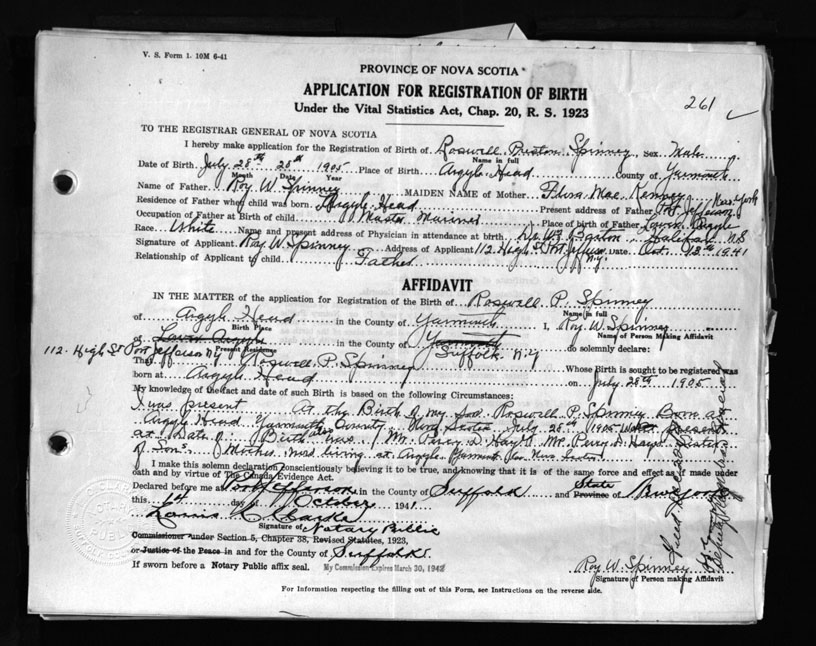 V. S. Form 1. 10M 6-41
PROVINCE OF NOVA SCOTIA
APPLICATION FOR REGISTRATION OF BIRTH
Under the Vital Statistics Act, Chap. 20, R. S. 1923
261
TO THE REGISTRAR GENERAL OF NOVA SCOTIA
I hereby make application for the Registration of Birth of Roswell Preston Spinney Sex Male
Name in full
Date of Birth July 28th 1905 Place of Birth Argyle Head County of Yarmouth
Month Date Year
Name of Father Roy W Spinney MAIDEN NAME of Mother Mae
Residence of Father when child was born Argyle Head Present address of Father Pt. Jefferson New York
Occupation of Father at Birth of child Master Mariner Place of birth of Father Lower Argyle
Race White Name and present address of Physician in attendance at birth Dr. Halifax N.S
Signature of Applicant Roy W. Spinney Address of Applicant 112 High St Port Jefferson N.Y. Date Oct. 13th 1941
Relationship of Applicant to child Father
AFFIDAVIT
IN THE MATTER of the application for Registration of the Birth of Roswell P. Spinney
Name in full
of Argyle Head in the County of Yarmouth I, Roy W. Spinney
Birth Place Name of Person Making Affidavit
of Lower Argyle in the County of Yarmouth do solemnly declare:
Present Residence
112. High St Port Jefferson N.Y Suffolk N.Y
That Roswell P. Spinney Whose Birth is sought to be registered was
born at Argyle Head on July 28th 1905
My knowledge of the fact and date of such Birth is based on the following Circumstances:
I was present At the Birth of my Son Roswell P. Spinney Born at
Argyle Head Yarmouth County Nova Scotia July 28th 1905 present
at Date of Birth also was Mr. Percy D. Mr. Percy D.
of Son's Mother, and living at Argyle Yarmouth Co. Nova Scotia
I make this solemn declaration conscientiously believing it to be true, and knowing that it is of the same force and effect as if made under
oath and by virtue of The Canada Evidence Act.
Declared before me at Port Jefferson in the County of Suffolk and Province of State New York
this 14 day of October 1941
Clarke
Signature of Notary Public
Commissioner under Section 5, Chapter 38, Revised Statutes, 1923,
or Justice of the Peace in and for the County of Suffolk
If sworn before a Notary Public affix seal. My Commission Expires March 30, 1942
Roy W. Spinney
Signature of Person making Affidavit
For Information respecting the filling out of this Form, see Instructions on the reverse side.